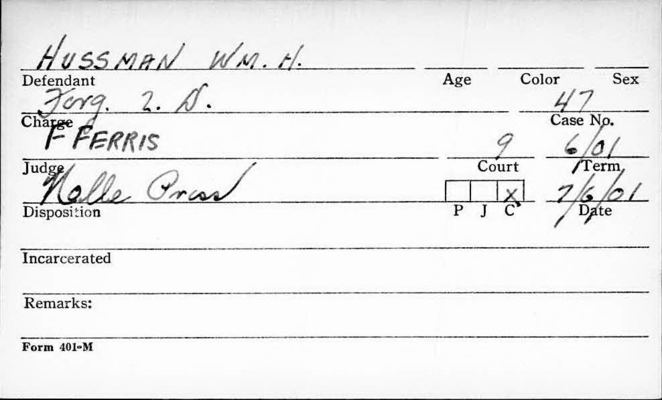 HUSSMAN WM. H.
Defendant Age Color Sex
Forg. 2. D. 47
Charge Case No.
F FERRIS 9 6/01
Judge Court Term
Nolle Pross X 7/6/01
Disposition P J C Date
Incarcerated
Remarks:
Form 401-M